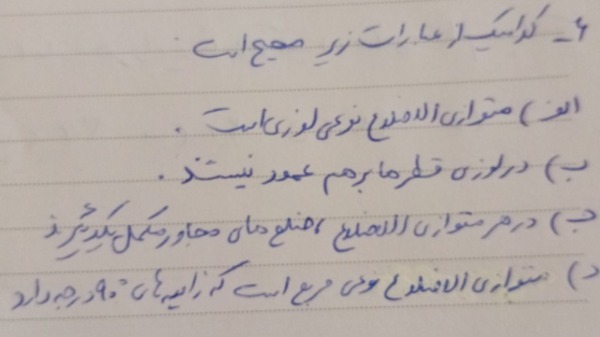 ۶_ کدامیک از عبارات زیر صحیح است
الف) متوازی الاضلاع نوعی لوزی است .
ب) در لوزی قطرها بر هم عمود نیستند .
ج) در هر متوازی الاضلاع ، ضلع های مجاور مکمل یکدیگرند
د) متوازی الاضلاع نوعی مربع است که زاویه های ۹۰ درجه دارد